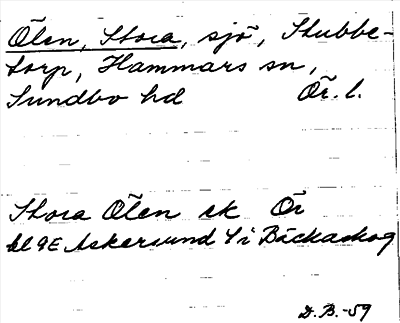 Ölen, Stora, sjö, Stubbe-
torp, Hammars sn,
Sundbo hd Ör. l.
Stora Ölen ek Ör
bl 9E Askersund 4 i Bäckaskog
D.B.-59